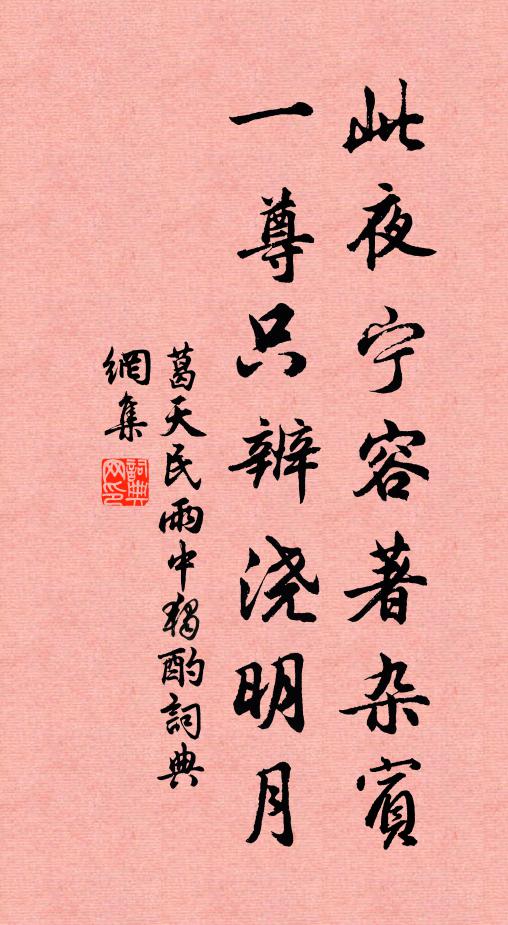 此夜宁容著杂賓
一尊只辨浇明月
葛天民雨中獨酌詞典
網集
詞典
网印